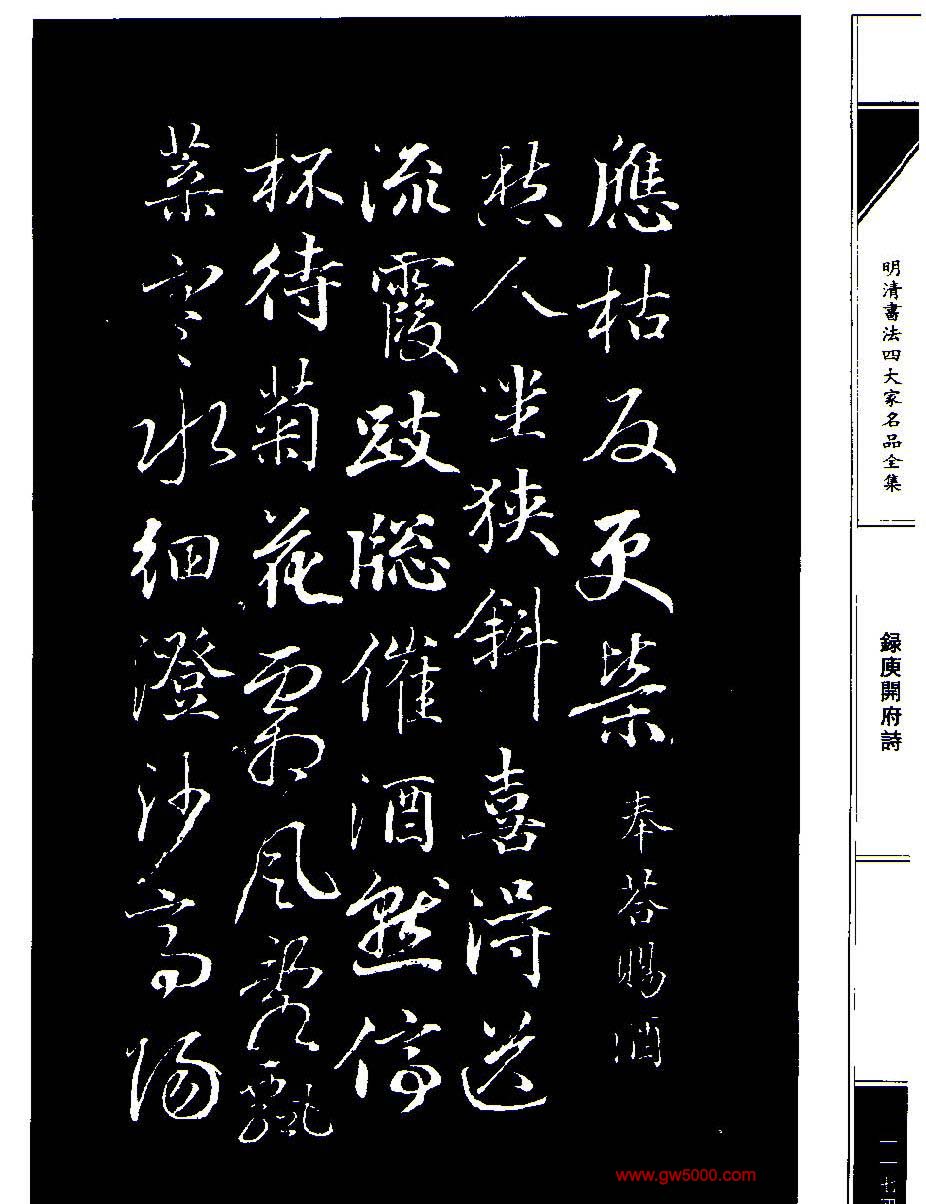 應枯反更榮 奉答賜酒
愁人坐狹斜喜得送
流霞跂牎催酒熟停
杯待菊花霜風亂飄
葉寒水細澄沙高陽
明清書法四大家名品全集
録庾開府詩
一一七
www.gw5000.com